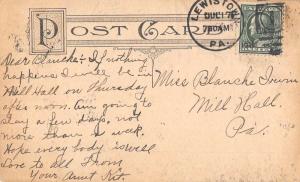 POST CARD
LEWISTOWN
7 30 AM
PA.
Dear Blanche:- If nothing
happens I will be in
Mill Hall on Thursday
after noon. Am going to
stay a few days, not
more than a week.
Hope every body is well
Love to all from
Your Aunt Kit.
Miss Blanche Irwin
Mill Hall.
Pa.